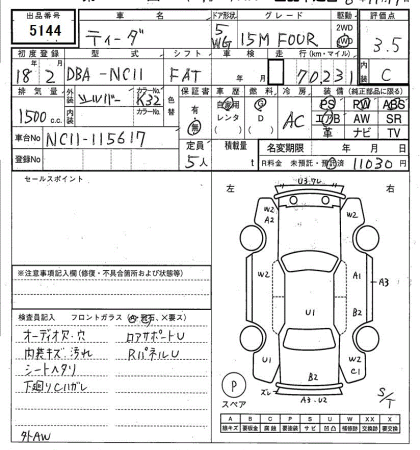 出品番号 車名 ドア形状 グレード 駆動 評価点
5144 ティーダ 5 WG 15M FOUR 2WD 4WD 3.5
初度登録 型式 シフト 車検 走行(km・マイル) 内装
18年 2月 DBA-NC11 FAT 年 月 70,231 C
排気量 外装 色 カラーNo. 色替 保証書 車歴 燃料 冷房 装備(純正部品に限る)
1500 c.c. シルバー K32 有 自家用 G AC PS PW ABS
内装 カラーNo. 無 レンタ D エアB AW SR
車台No NC11-115617 革 ナビ TV
登録No 定員 積載量 名変期限 年 月 日
5人 t R料金 未預託・預託済 11030円
セールスポイント
左 右
U3.ワレ
W2 A2 W2
W2 A1 A3
U1 B2
U1 W2 C1
B2
ズレ A3.U2
P スペア S/T
※注意事項記入欄(修復・不具合箇所および状態等)
検査員記入 フロントガラス
オーディオ欠.穴 ロアサポートU
内装キズ.汚れ RパネルU
シートヘタリ
下廻りC11ガレ
外AW
A B C P S U W X XX
線キズ 要板金 腐蝕 要塗装 サビ 凹凸 補修跡 要交換 交換済